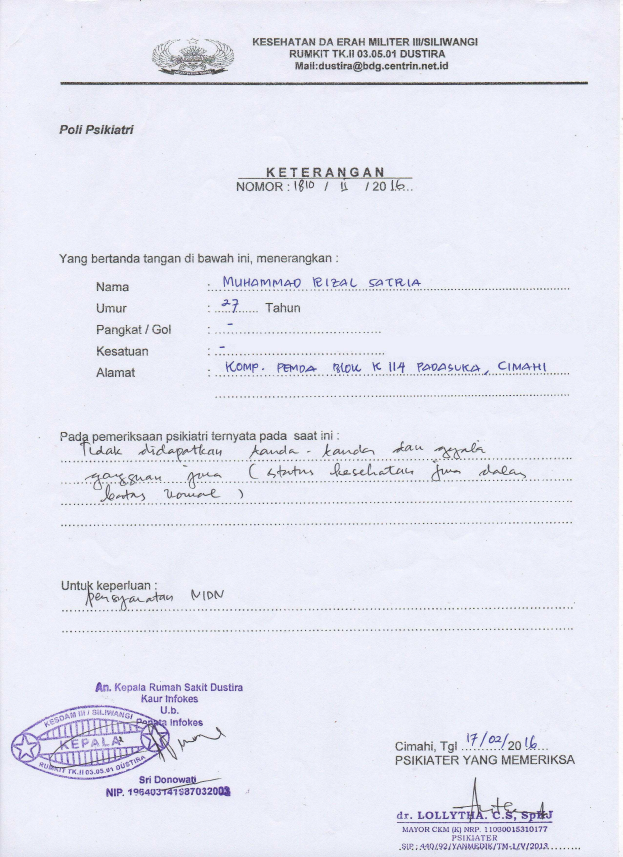 KESEHATAN DA ERAH MILITER III/SILIWANGI
RUMKIT TK.II 03.05.01 DUSTIRA
Mail:dustira@bdg.centrin.net.id
Poli Psikiatri
KETERANGAN
NOMOR : 1810 / II / 2016..
Yang bertanda tangan di bawah ini, menerangkan :
Nama : MUHAMMAD RIZAL SATRIA
Umur : 27 Tahun
Pangkat / Gol : -
Kesatuan : -
Alamat : KOMP. PEMDA BLOK K 114 PADASUKA, CIMAHI
Pada pemeriksaan psikiatri ternyata pada saat ini :
Tidak didapatkan tanda-tanda dan gejala
gangguan jiwa (status kesehatan jiwa dalam
batas normal)
Untuk keperluan :
persyaratan NIDN
An. Kepala Rumah Sakit Dustira
Kaur Infokes
U.b.
Penata Infokes
KESDAM III / SILIWANGI
KEPALA
RUMKIT TK.II 03.05.01 DUSTIRA
Sri Donowati
NIP. 196403141987032003
Cimahi, Tgl 17/02/2016...
PSIKIATER YANG MEMERIKSA
dr. LOLLYTHA. C.S, SpKJ
MAYOR CKM (K) NRP. 11030015310177
PSIKIATER
SIP : 440/92/YANMEDIK/TM-1/V/2013